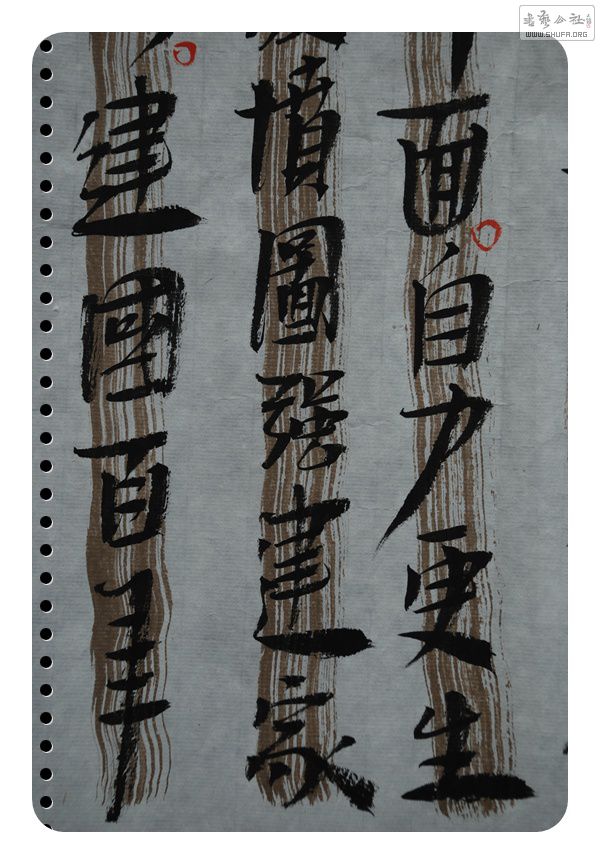 面自力更生
憤圖強建家
建國百年
書藝公社
WWW.SHUFA.ORG